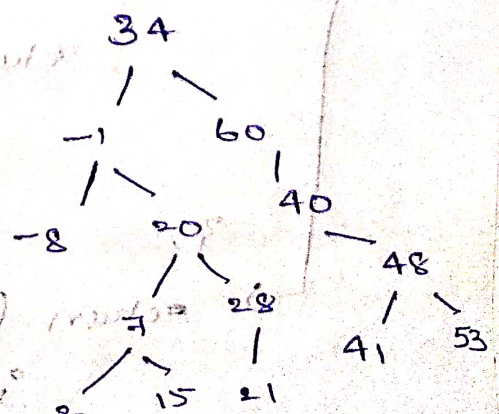 34
-1 60
40
-8 20
48
7 28
41 53
15 21